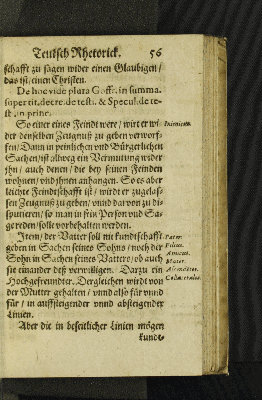 Teutsch Rhetorick. 56
schafft zu sagen wider einen Glaubigen /
das ist / einen Christen.
De hoc vide plura Goff. in summa.
super tit. de cre. de testi. & Specul. de te-
st. in princ.
So einer eines Feindt were / wirt er wi-
der denselben Zeugnuß zu geben verworf-
fen / Dann in peinlichen vnd Bürgerlichen
Sachen / ist allweg ein Vermutung wider
jhn / auch denen / die bey seinen Feinden
wohnen / vnd jhnen anhangen. So es aber
leichte Feindschafft ist / wirdt er zugelas-
sen Zeugnuß zu geben / vnnd darvon zu dis-
putieren / so man in sein Person vnd Sa-
ge reden / solle vorbehalten werden.
Item / der Vatter soll nit kundtschafft
geben in Sachen seines Sohns / noch der
Sohn in Sachen seines Vatters / ob auch
sie einander deß verwilligen. Darzu ein
Hochgefreundter. Dergleichen wirdt von
der Mutter gehalten / vnnd also für vnnd
für / in auffsteigender vnnd absteigender
Linien.
Aber die in beseitlicher Linien mögen
kund-
Inimicus.
Pater.
Filius.
Amicus.
Mater.
Ascendētes.
Collaterales.